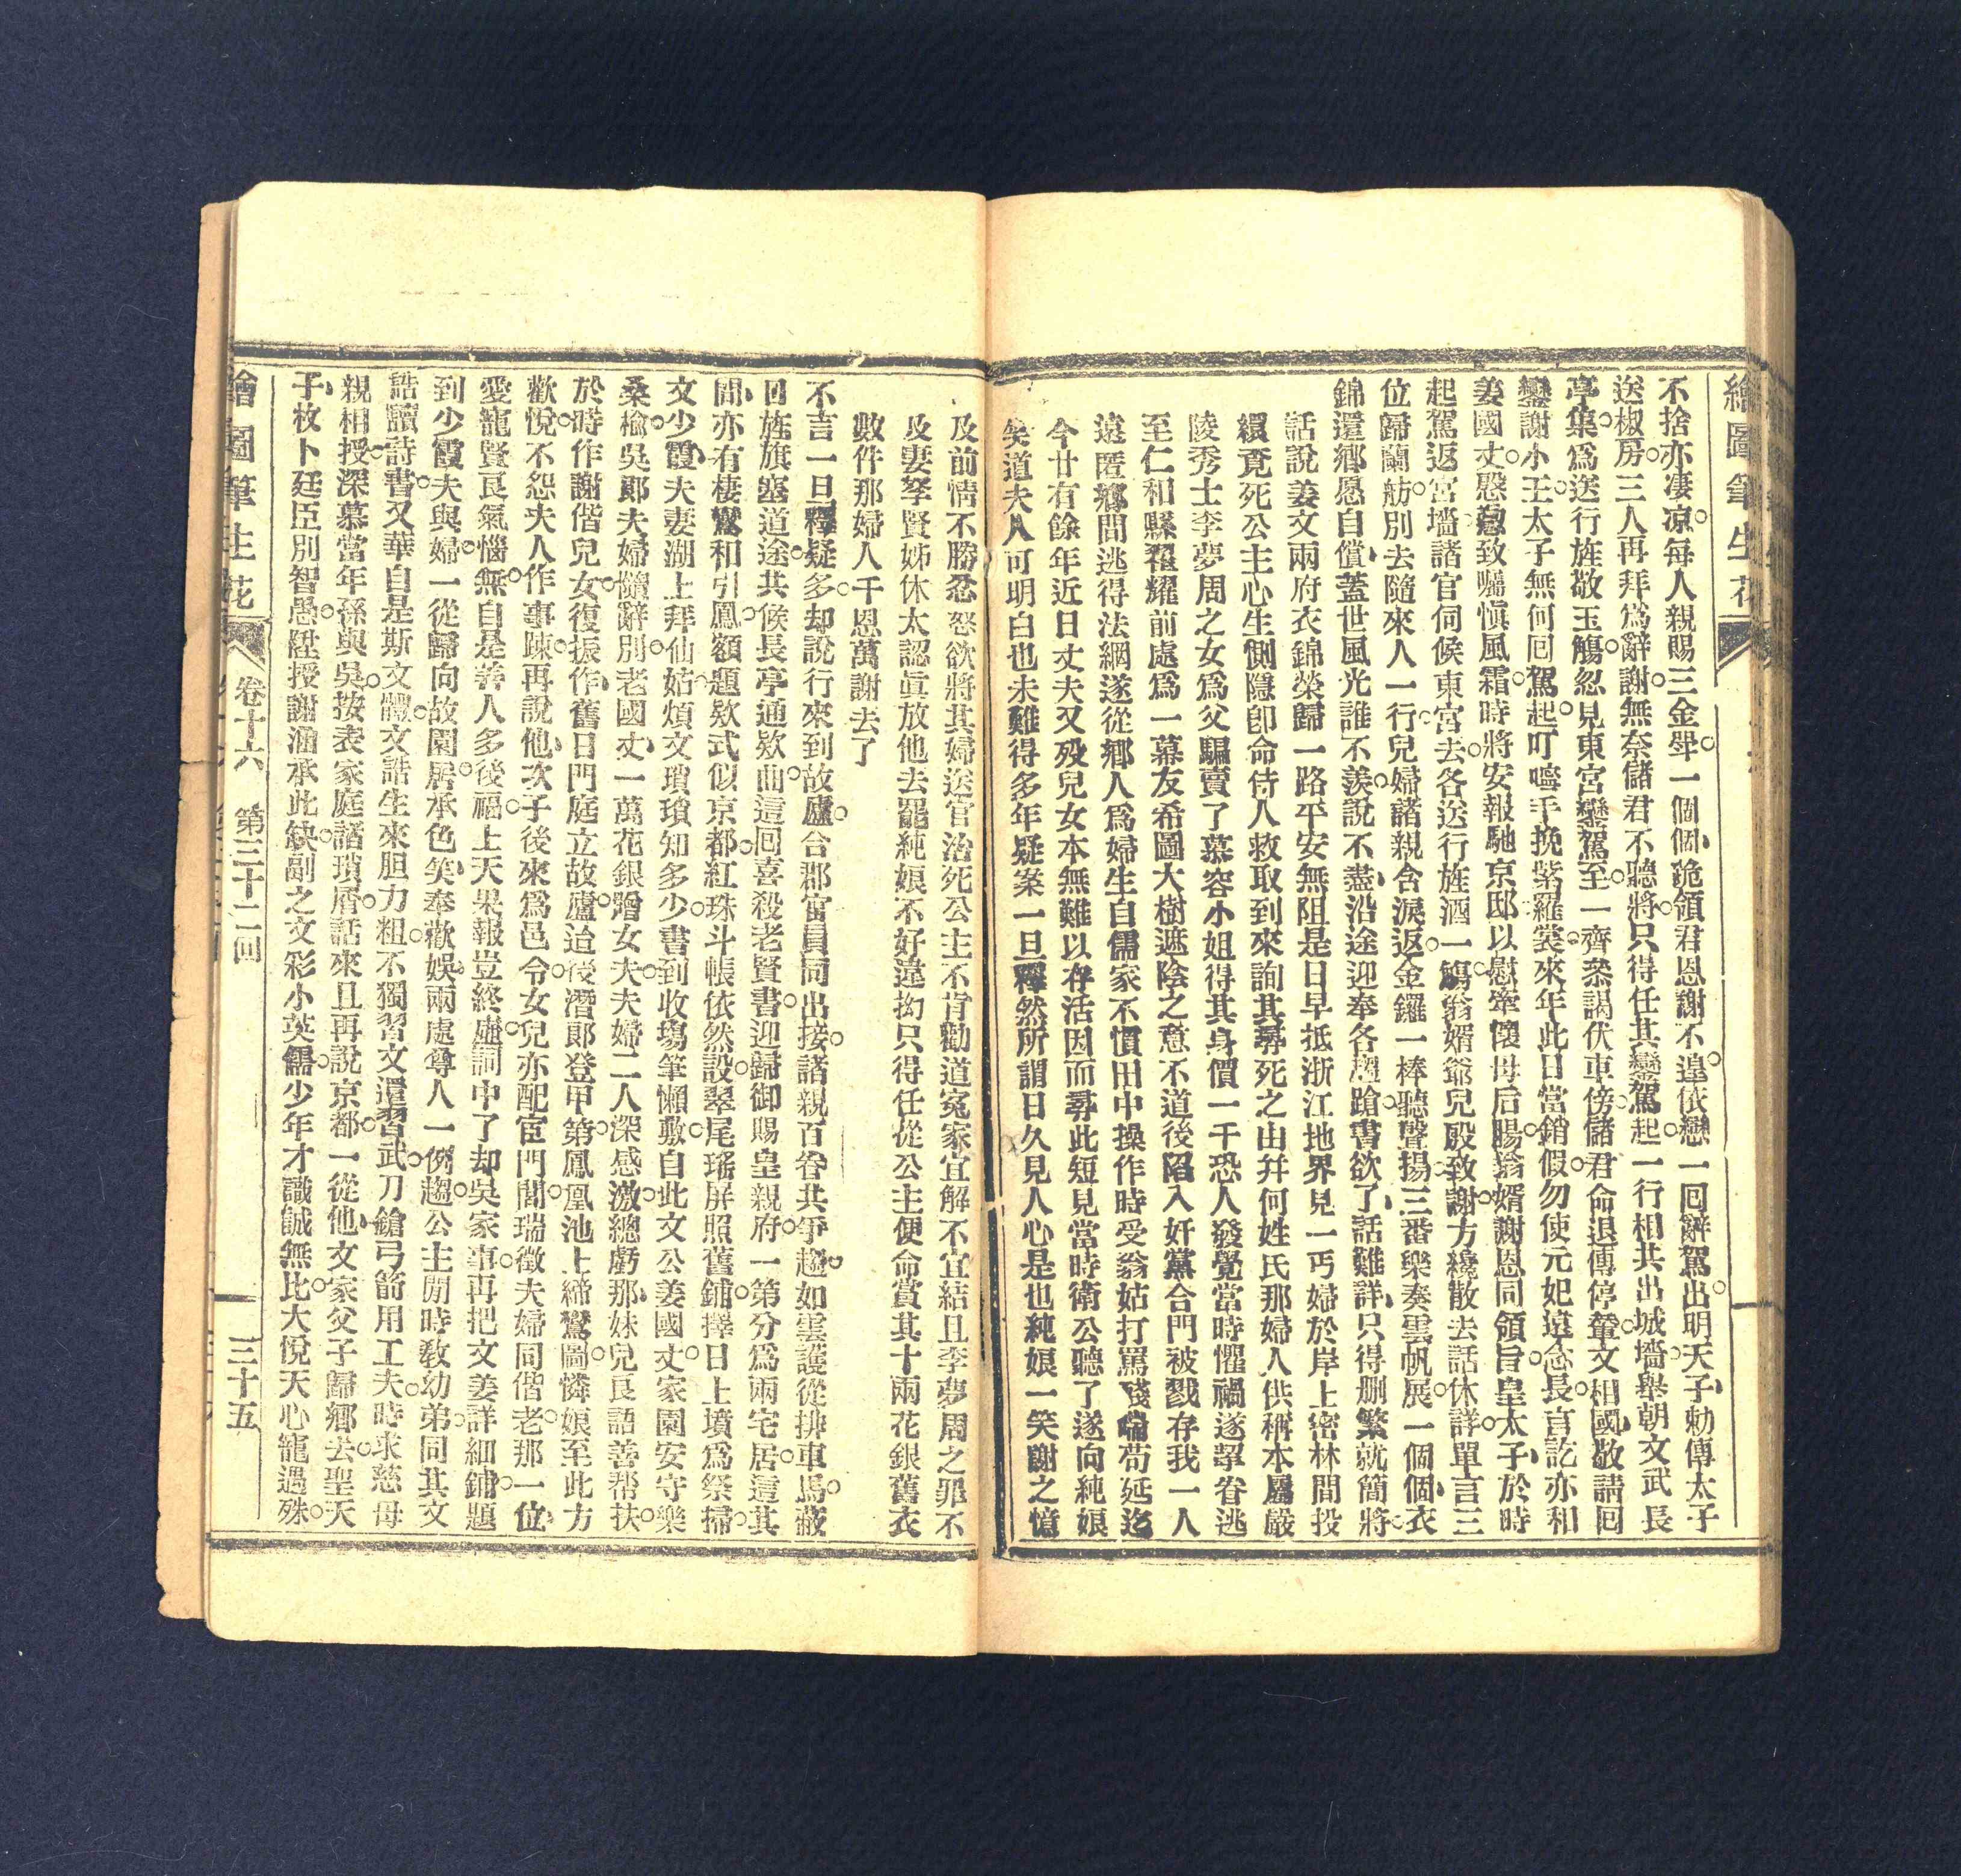 繪圖筆生花
不捨亦凄凉每人親賜三金斝一個個跪領君恩謝不遑依戀一回辭駕出明天子勅傳太子
送椒房三人再拜爲辭謝無奈儲君不聽將只得任其鑾駕起一行相共出城墻舉朝文武長
亭集爲送行旌敬玉觴忽見東宮鑾駕至一齊叅謁伏車傍儲君命退傳停輦文相國敬請回
鑾謝小王太子無何回駕起叮嚀手挽紫羅裳來年此日當銷假勿使元妃遠念長言訖亦和
姜國丈慇懃致囑愼風霜時將安報馳京邸以慰牽懷母后腸翁婿謝恩同領旨皇太子於時
起駕返宮墻諸官伺候東宮去各送行旌酒一觴翁婿爺兒殷致謝方纔散去話休詳單言三
位歸蘭舫別去隨來人一行兒婦諸親含淚返金鑼一棒聽聲揚三番樂奏雲帆展一個個衣
錦還鄕愿自償蓋世風光誰不羨說不盡沿途迎奉各趨蹌書欲了話難詳只得刪繁就簡將
話說姜文兩府衣錦榮歸一路平安無阻是日早抵浙江地界見一丐婦於岸上密林間投
繯覓死公主心生惻隱卽命侍人救取到來詢其尋死之由幷何姓氏那婦人供稱本屬嚴
陵秀士李夢周之女爲父騙賣了慕容小姐得其身價一千恐人發覺當時懼禍遂挈眷逃
至仁和縣躱耀前處爲一幕友希圖大樹遮陰之意不道後陷入奸黨合門被戮存我一人
遠匿鄕間逃得法網遂從鄕人爲婦生自儒家不慣田中操作時受翁姑打罵殘喘苟延迄
今廿有餘年近日丈夫又歿兒女本無難以存活因而尋此短見當時衛公聽了遂向純娘
笑道夫人可明白也未難得多年疑案一旦釋然所謂日久見人心是也純娘一笑謝之憶
及前情不勝忿怒欲將其婦送官治死公主不肯勸道冤家宜解不宜結且李夢周之罪不
及妻孥賢姊休太認眞放他去罷純娘不好違拗只得任從公主便命賞其十兩花銀舊衣
數件那婦人千恩萬謝去了
不言一旦釋疑多却說行來到故廬合郡官員同出接諸親百眷共爭趨如雲護從排車馬蔽
日旌旗塞道途共候長亭通欵曲這回喜殺老賢書迎歸御賜皇親府一第分爲兩宅居這其
間亦有棲鸞和引鳳額題欵式似京都紅珠斗帳依然設翠尾瑤屛照舊鋪擇日上墳爲祭掃
文少霞夫妻湖上拜仙姑煩文瑣瑣知多少書到收塲筆懶敷自此文公姜國丈家園安守樂
桑楡吳郞夫婦隨辭別老國丈一萬花銀贈女夫夫婦二人深感激總虧那妹兒良語善幇扶
於時作謝偕兒女復振作舊日門庭立故廬迨後潛郞登甲第鳳凰池上締鴛圖憐娘至此方
歡悅不怨夫人作事疎再說他次子後來爲邑令女兒亦配宦門閭瑞徵夫婦同偕老那一位
愛寵賢良氣惱無自是善人多後福上天果報豈終虛詞中了却吳家事再把文姜詳細鋪題
到少霞夫與婦一從歸向故園居承色笑奉歡娛兩處尊人一例趨公主閒時敎幼弟同其文
誥讀詩書文華自是斯文體文誥生來胆力粗不獨習文還習武刀鎗弓箭用工夫時求慈母
親相授深慕當年孫與吳按表家庭諸瑣屑話來且再說京都一從他文家父子歸鄕去聖天
子枚卜廷臣別智愚陞授謝涵承此缺副之文彩小英儒少年才識誠無比大悅天心寵遇殊
繪圖筆生花
卷十六 第三十二回
三十五